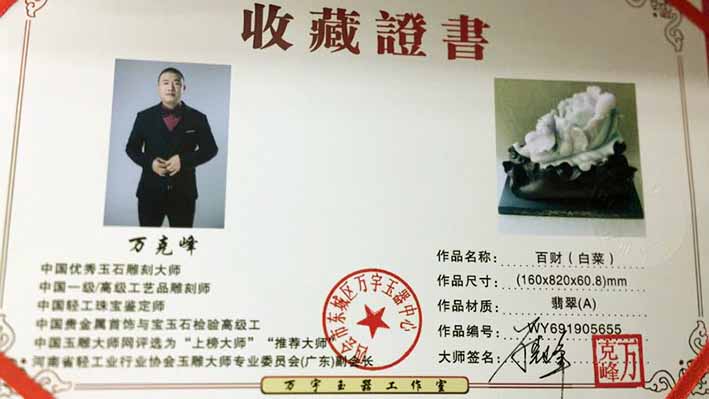 收藏證書
万克峰
中国优秀玉石雕刻大师
中国一级/高级工艺品雕刻师
中国轻工珠宝鉴定师
中国贵金属首饰与宝玉石检验高级工
中国玉雕大师网评选为“上榜大师”“推荐大师”
河南省轻工业行业协会玉雕大师专业委员会(广东)副会长
作品名称： 百财（白菜）
作品尺寸： (160x820x60.8)mm
作品材质： 翡翠(A)
作品编号： WY691905655
大师签名：
万克峰
四会市东城区万宇玉器中心
万宇玉器工作室